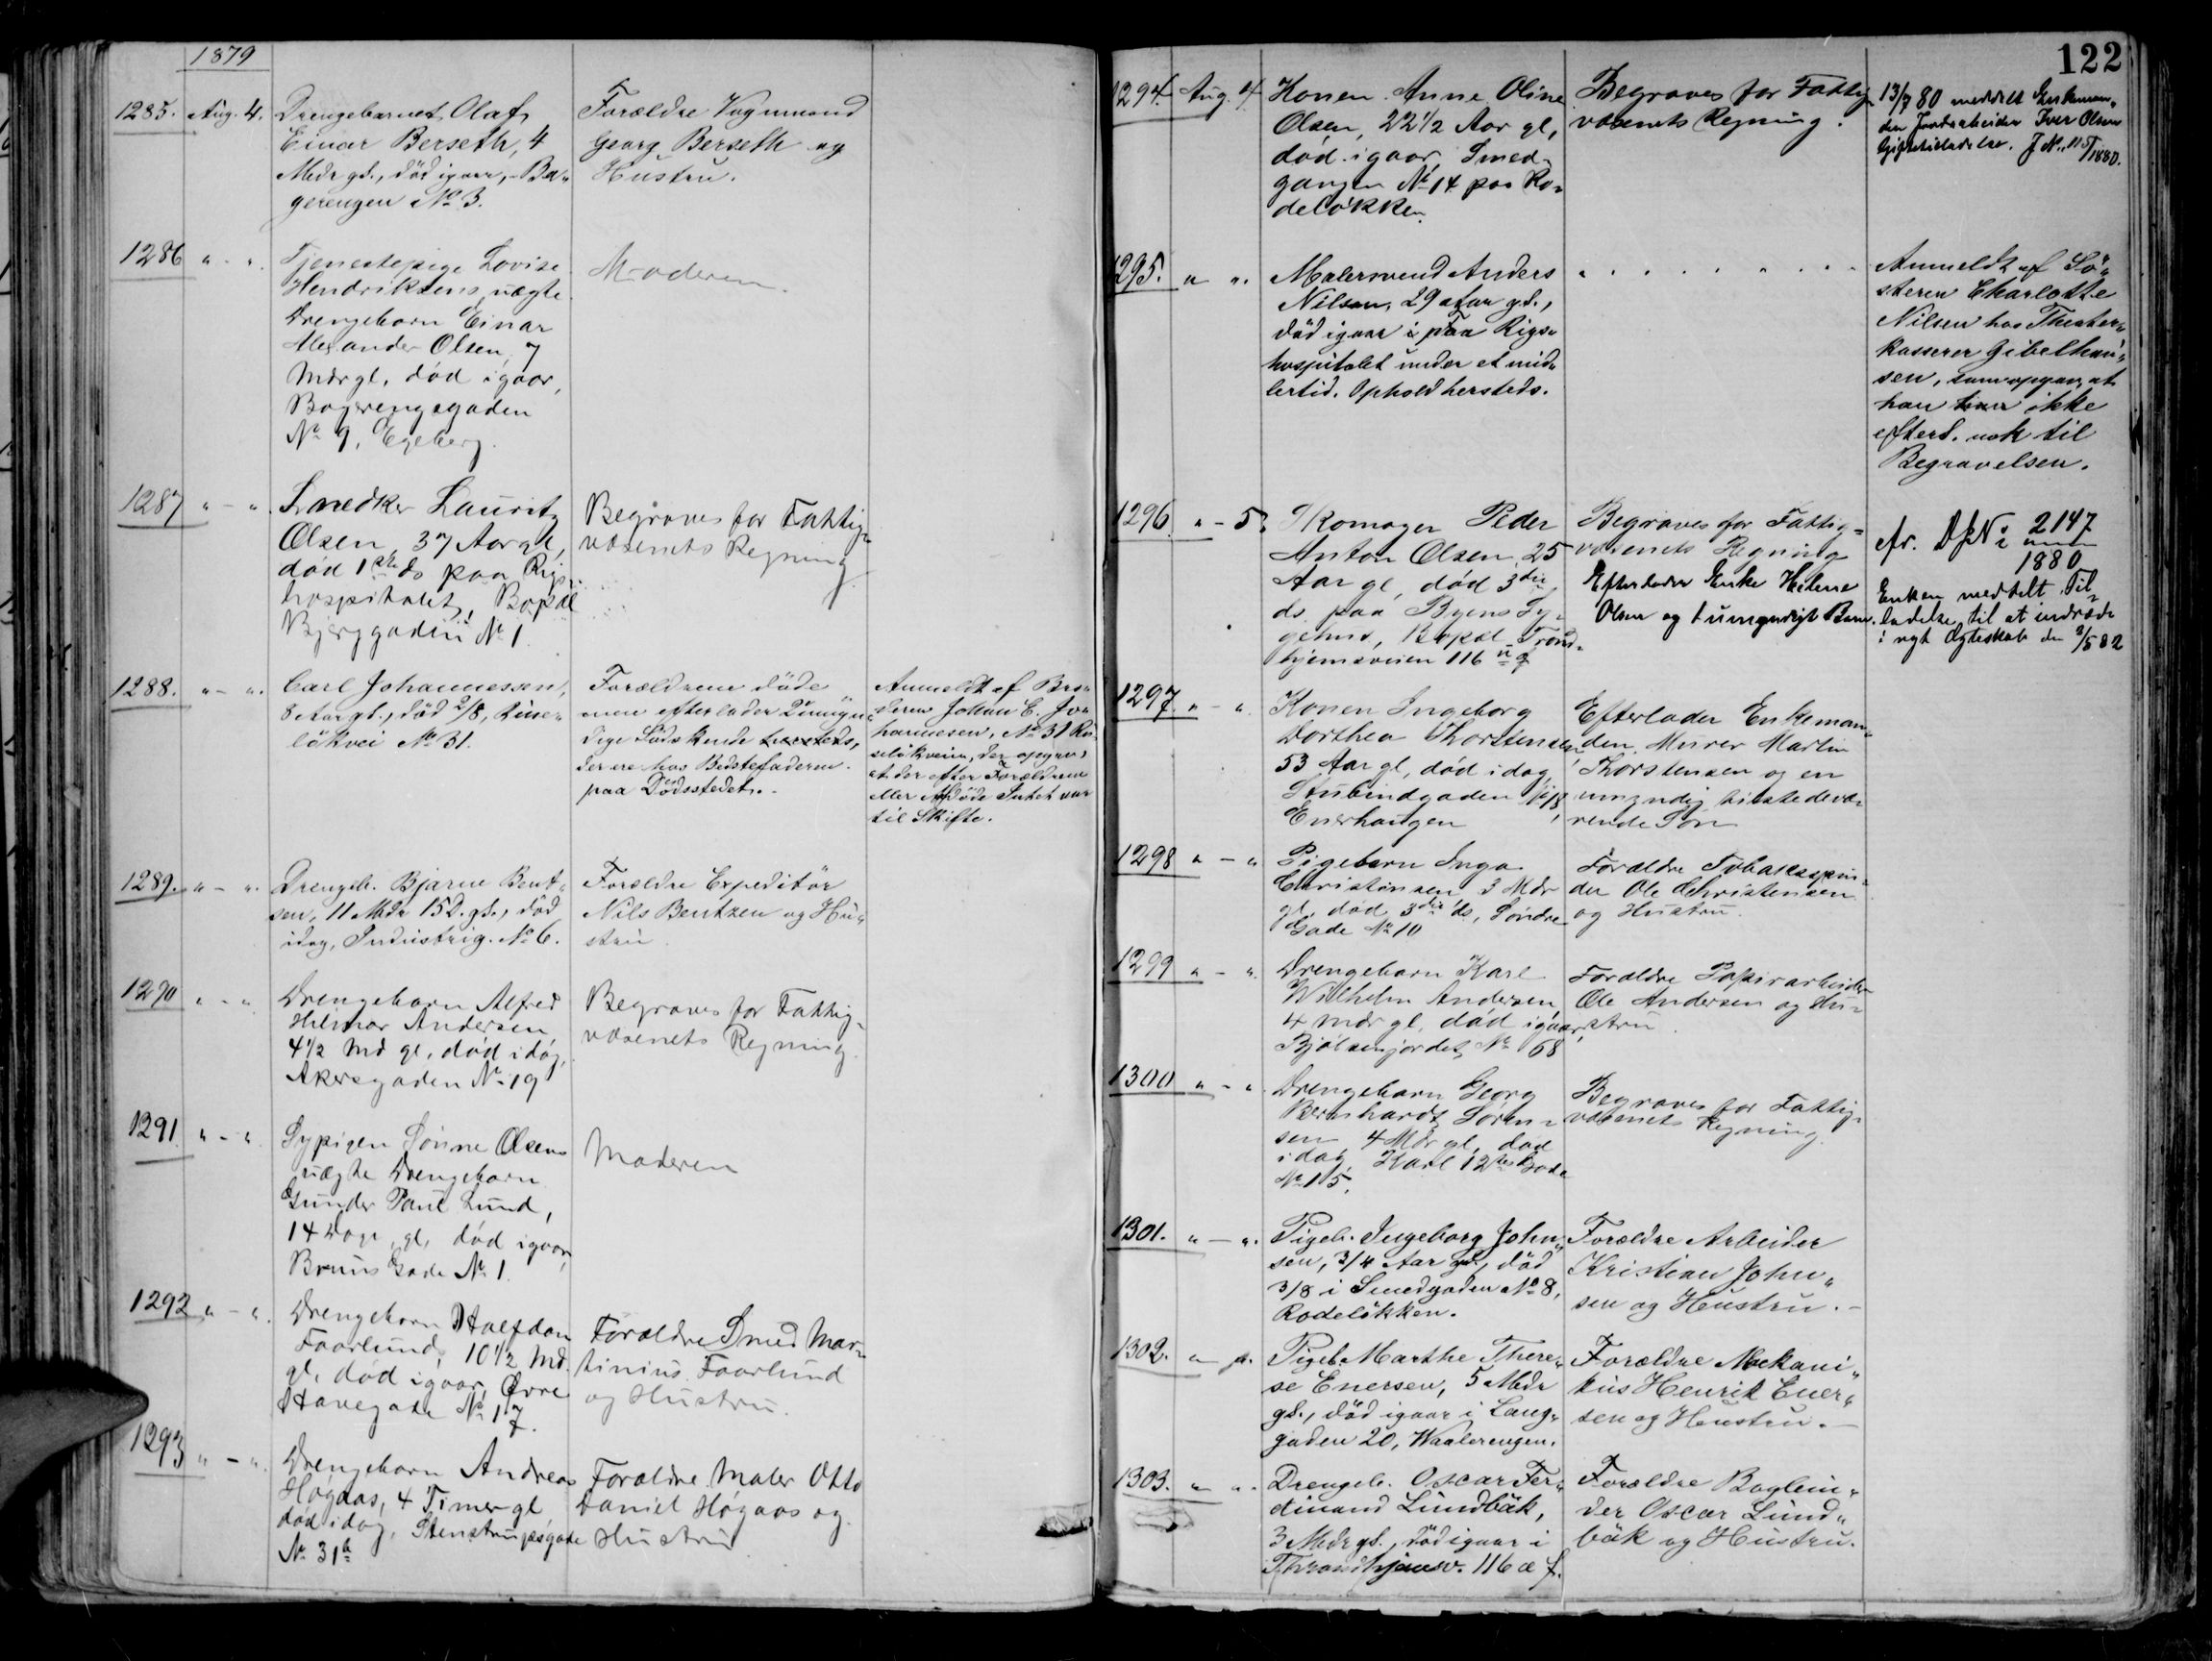 1879
1285. Aug. 4. Drengebarnet Olaf
Einar Berseth, 4
Mdr gl., död igaar, Ba-
gerengen No 3.
Forældre Vognmand
Georg Berseth og
Hustru.
1286 " - " Tjenestepige Lovise
Hendriksens uægte
Drengebarn Einar
Alexander Olsen, 7
Mdr gl. död igaar,
Bagerengsgaden
No 9, Egeberg.
Moderen.
1287 " - " Snedker Lauritz
Olsen, 37 Aar gl,
död 1ste ds paa Rigs-
hospitalet, Bopæl
Bjerggaden No 1.
Begraves for Fattig-
væsenets Regning
1288. " - " Carl Johannessen,
8 Aar gl., död 2/8, Ruse-
lökvei No 31.
Forældrene döde
men efterlader 2 umyn-
dige Södskende hersteds,
der ere hos Bedstefaderen
paa Dödsstedet.
Anmeldt af Bro-
deren Johan E. Jo-
hannesen, No 31 Ru-
selökveien, der opgav,
at der efter Forældrene
eller Afdöde Intet var
til Skifte.
1289. " - " Drengeb. Bjarne Bent-
sen, 11 Mdr 15 D. gl., död
idag, Industrig. No 6.
Forældre Expeditör
Nils Bentzen og Hu-
stru
1290 " - " Drengebarn Alfred
Hilmar Andersen
4 1/2 Md gl. död idag,
Akersgaden No 19
Begraves for Fattig-
væsenets Regning.
1291 " - " Sypigen Lönne Olsens
uægte Drengebarn
Gunder Paul Lund,
14 Dage gl, död igaar,
Bruns Gade No 1.
Moderen
1292 " - " Drengebarn Halfdan
Faarlund, 10 1/2 Md.
gl. död igaar, Øvre
Havegade No 17.
Forældre Smed Mar-
tinius Faarlund
og Hustru.
1293 " - " Drengebarn Andreas
Høgaas, 4 Timer gl
död idag, Stenstrupsgade
No 31b
Forældre Maler Otto
Daniel Høgaas og
Hustru
122
1294. Aug. 4 Konen Anne Oline
Olsen, 22 1/2 Aar gl,
död igaar, Smed-
gangen No 14 paa Ro-
delökken.
Begraves for Fattig-
væsenets Regning.
13/7 80 meddelt Enkeman-
den Jordarbeider Iver Olsen
Giftetilladelse. J No 115/1880.
1295. " " Malersvend Anders
Nilsen, 29 Aar gl.,
död igaar i paa Rigs-
hospitalet under et mid-
lertid. Ophold hersteds.
Anmeldt af Sö-
steren Charlotte
Nilsen hos Theater-
kasserer Gibelhau-
sen, som opgav, at
han ikke
efterl. nok til
Begravelsen.
1296. " - 5. Skomager Peder
Anton Olsen, 25
Aar gl, död 3die
ds. paa Byens Sy-
gehus, Bopæl Trond-
hjemsveien 116
Begraves for Fattig-
væsenets Regning
Efterlader Enke Helene
Olsen og 1 umyndigt Barn.
cfr. DJN: 2147
1880
Enken meddelt Til-
ladelse til at indtræde
i nyt Ægteskab den 2/5 82
1297. " - " Konen Ingeborg
Dorthea Thorstensen,
53 Aar gl, död idag,
Stubindgaden 18,
Enerhaugen
Efterlader Enkeman-
den, Murer Martin
Thorstensen og en
umyndig tilstedevæ-
rende Søn
1298 " - " Pigebarn Inga
Christensen 3 Mdr
gl. död 3die ds, Söndre
Gade No 10
Forældre Tobaksspin-
der Ole Christensen
og Hustru.
1299 " - " Drengebarn Karl
Wilhelm Andersen,
4 Mdr gl, död igaar,
Bjölsenjordet No 68
Forældre Papirarbeider
Ole Andersen og Hu-
stru.
1300 " - " Drengebarn Georg
Bernhardt Sören-
sen 4 Mdr gl, död
idag, Karl 12tes Gade
No 15.
Begraves for Fattig-
væsenets Regning.
1301. " - " Pigeb. Ingeborg John-
sen, 3/4 Aar gl., död
3/8 i Smedgaden No 8,
Rodelökken.
Forældre Arbeider
Kristian John-
sen og Hustru. -
1302. " " Pigeb. Marthe There-
se Enersen, 5 Mdr
gl., död igaar i Lang-
gaden 20, Waalerengen.
Forældre Mekani-
kus Henrik Ener-
sen og Hustru. -
1303. " " Drengeb. Oscar Fer-
dinand Lundbäk,
3 Mdr gl., död igaar i
Throndhjemsv. 116 æ f.
Forældre Bogbin-
der Oscar Lund-
bäk og Hustru.